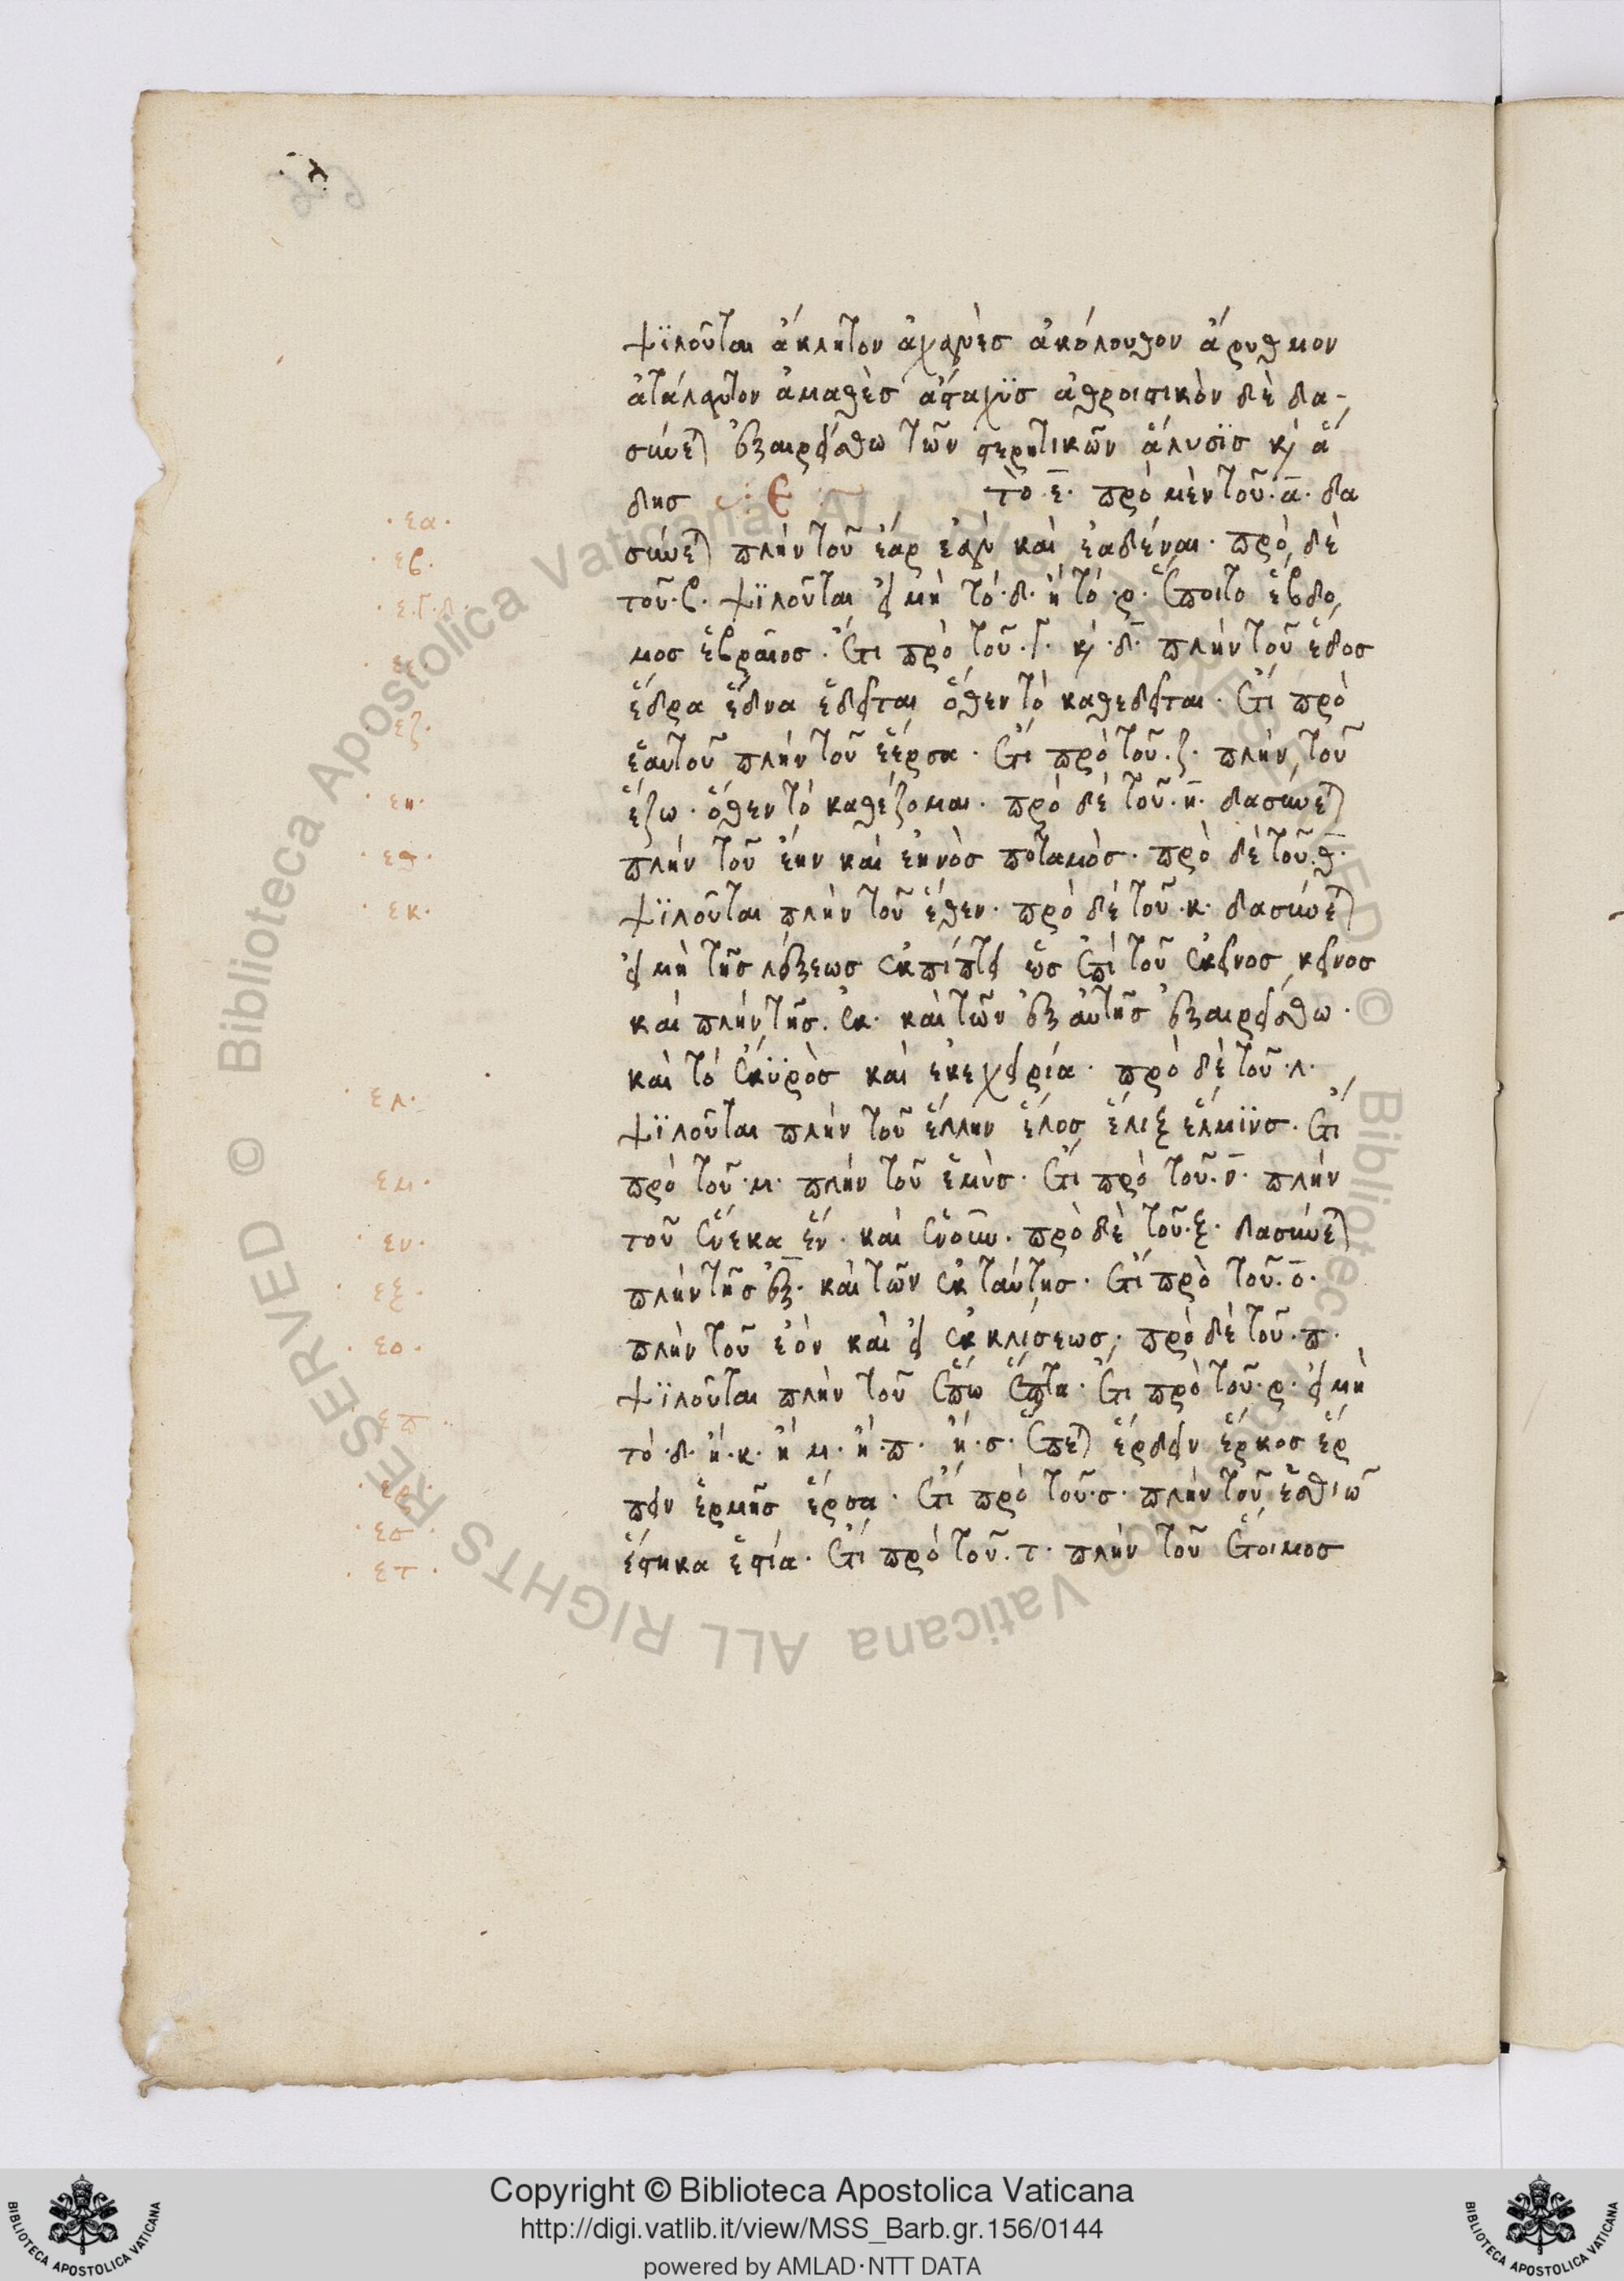 ψϊλοῦται ἄκλητον ἀχανὲσ ἀκόλουθον ἄρυθμον
ἀτάλαντον ἀμαθὲσ ἄσταχϋσ ἀθροιστικὸν δὲ δα-
σύνεται ἐξαιρείσθω τῶν στερητικῶν ἅλυσϊσ καὶ ἅ
δησ · Ε · τὸ ε̄· πρὸ μὲν τοῦ·ᾱ· δα
σύνεται πλὴν τοῦ ἔαρ ἐὰν καὶ ἐαδέναι· πρὸ δὲ
τοῦ·β· ψϊλοῦται εἰ μὴ τὸ·δ· ἢ τὸ·ρ· ἕποιτο ἕβδο
μοσ ἑβραῖοσ· ἔτι πρὸ τοῦ·γ· καὶ ·δ̄· πλὴν τοῦ ἕδοσ
ἕδρα ἕδνα ἑδεῖται ὅθεν τὸ καθεδεῖται· ἔτι πρὸ
ἑαυτοῦ πλὴν τοῦ ἑέρσα· ἔτι πρὸ τοῦ·ζ· πλὴν τοῦ
ἕζω· ὅθεν τὸ καθέζομαι· πρὸ δὲ τοῦ·η̄· δασύνεται
πλὴν τοῦ ἔην καὶ ἐηνὸσ ποταμὸσ· πρὸ δὲ τοῦ·θ̄·
ψϊλοῦται πλὴν τοῦ ἕθεν· πρὸ δὲ τοῦ·κ· δασύνεται
εἰ μὴ τῆσ λέξεωσ ἐκπίπτει ὡσ ἐπὶ τοῦ ἐκεῖνοσ κεῖνοσ
καὶ πλὴν τῆσ·ἐκ· καὶ τῶν ἐξ αὐτῆσ ἐξαιρείσθω·
καὶ τὸ ἑκϋρὸσ καὶ ἐκεχειρία· πρὸ δὲ τοῦ·λ·
ψϊλοῦται πλὴν τοῦ ἕλλην ἕλοσ ἕλιξ ἕλμϊνσ· ἔτι
πρὸ τοῦ·μ· πλὴν τοῦ ἑμὺσ· ἔτι πρὸ τοῦ·ν̄· πλὴν
τοῦ ἕνεκα ἕν· καὶ ἑνοῦν· πρὸ δὲ τοῦ·ξ· δασύνεται
πλὴν τῆσ ἐξ· καὶ τῶν ἐκ ταύτησ· ἔτι πρὸ τοῦ·ο̄·
πλὴν τοῦ ἐὸν καὶ εἰ ἐκ κλίσεωσ· πρὸ δὲ τοῦ·π·
ψϊλοῦται πλὴν τοῦ ἕπω ἕπτα· ἔτι πρὸ τοῦ·ρ· εἰ μὴ
τὸ·δ· ἢ·κ· ἢ μ· ἢ·π· ἢ·σ· ἕπεται ἕρδειν ἕρκοσ ἕρ
πειν ἑρμῆσ ἕρσα· ἔτι πρὸ τοῦ·σ· πλὴν τοῦ ἑσθιῶ
ἕστηκα ἑστία· ἔτι πρὸ τοῦ·τ· πλὴν τοῦ ἕτοιμοσ
·εα·
·εβ·
·ε·γ·δ·
·εε·
εζ·
·εη·
·εθ·
·εκ·
·ελ·
εμ·
·εν·
·εξ·
·εο·
·επ·
·ερ·
·εσ·
·ετ·
© Biblioteca Apostolica Vaticana ALL RIGHTS RESERVED
Copyright © Biblioteca Apostolica Vaticana
http://digi.vatlib.it/view/MSS_Barb.gr.156/0144
powered by AMLAD·NTT DATA
BIBLIOTECA APOSTOLICA VATICANA
BIBLIOTECA APOSTOLICA VATICANA